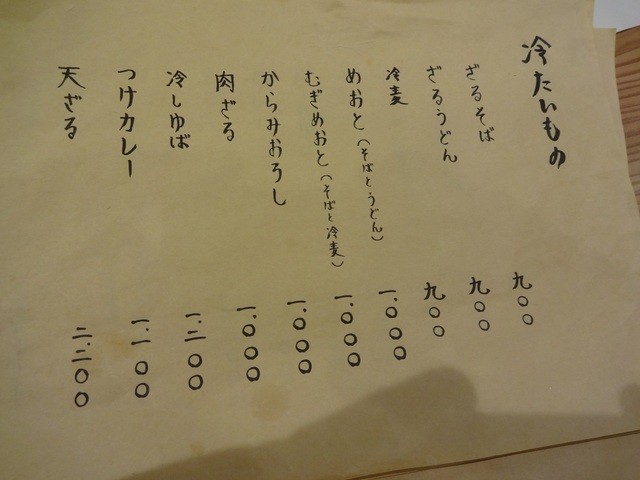 冷たいもの
ざるそば 九〇〇
ざるうどん 九〇〇
冷麦 九〇〇
めおと（そばとうどん） 一.〇〇〇
むぎめおと（そばと冷麦） 一.〇〇〇
からみおろし 一.〇〇〇
肉ざる 一.〇〇〇
冷しゆば 一.二〇〇
つけカレー 一.一〇〇
天ざる 二.二〇〇